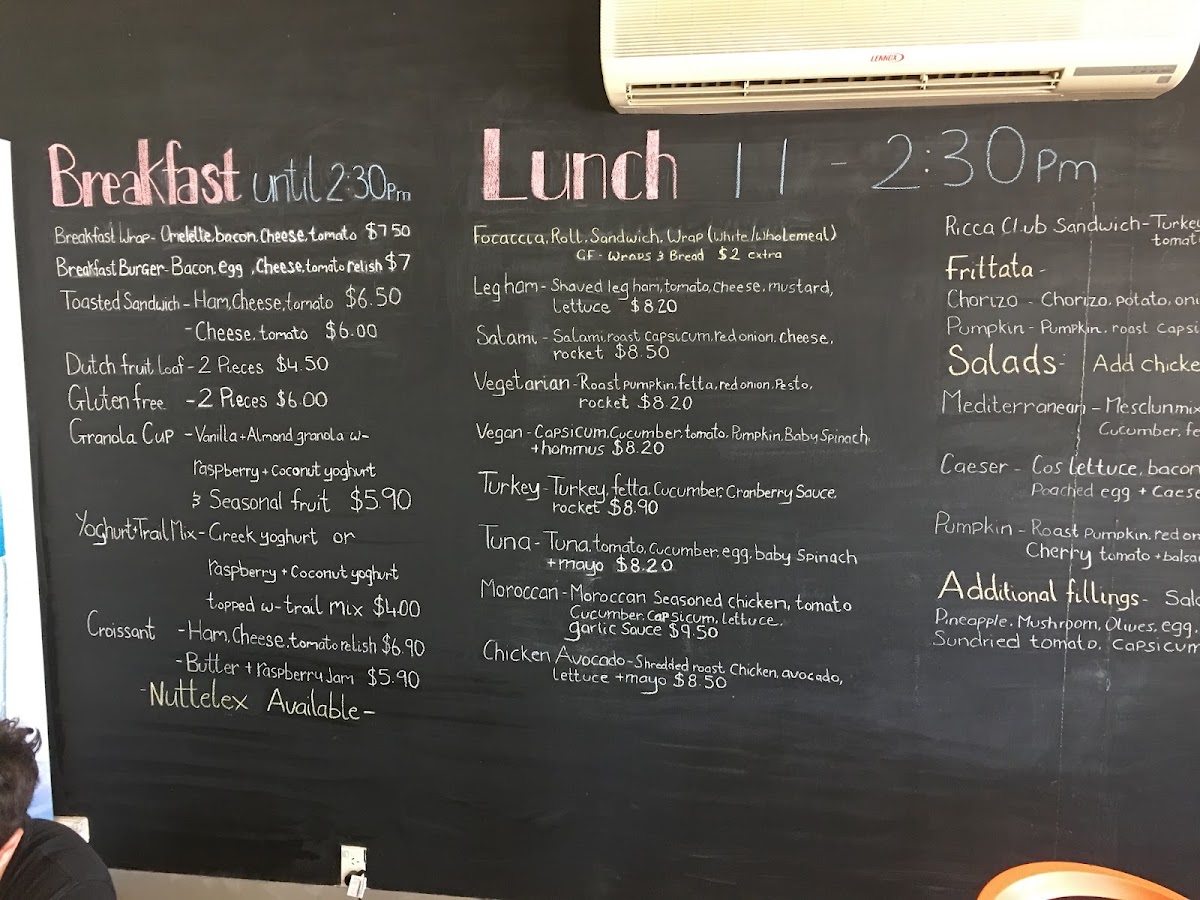 LENNOX
Breakfast until 2:30pm
Breakfast Wrap - Omelette, bacon, cheese, tomato $7.50
Breakfast Burger - Bacon, egg, cheese, tomato relish $7
Toasted Sandwich - Ham, Cheese, tomato $6.50
- Cheese, tomato $6.00
Dutch fruit loaf - 2 Pieces $4.50
Gluten free - 2 Pieces $6.00
Granola Cup - Vanilla + Almond granola w-
raspberry + coconut yoghurt
& Seasonal fruit $5.90
Yoghurt + Trail Mix - Greek yoghurt or
raspberry + coconut yoghurt
topped w- trail mix $4.00
Croissant - Ham, Cheese, tomato relish $6.90
- Butter + raspberry Jam $5.90
- Nuttelex Available -
Lunch 11 - 2:30pm
Focaccia, Roll, Sandwich, Wrap (White/Wholemeal)
GF - Wraps & Bread $2 extra
Leg ham - Shaved leg ham, tomato, cheese, mustard,
lettuce $8.20
Salami - Salami, roast capsicum, red onion, cheese,
rocket $8.50
Vegetarian - Roast pumpkin, fetta, red onion, Pesto,
rocket $8.20
Vegan - Capsicum, Cucumber, tomato, Pumpkin, Baby Spinach
+ hommus $8.20
Turkey - Turkey, fetta, Cucumber, Cranberry Sauce,
rocket $8.90
Tuna - Tuna, tomato, cucumber, egg, baby Spinach
+ mayo $8.20
Moroccan - Moroccan Seasoned chicken, tomato
Cucumber, Capsicum, lettuce,
garlic Sauce $9.50
Chicken Avocado - Shredded roast Chicken, avocado,
lettuce + mayo $8.50
Ricca Club Sandwich - Turkey
Frittata -
Chorizo - Chorizo, potato,
Pumpkin - Pumpkin, roast
Salads - Add
Mediterranean - Mesclun mix
Cucumber,
Caeser - Cos lettuce, bacon
Poached egg +
Pumpkin - Roast pumpkin, red
Cherry tomato +
Additional fillings -
Pineapple, Mushroom, Olives, egg,
Sundried tomato, Capsicum